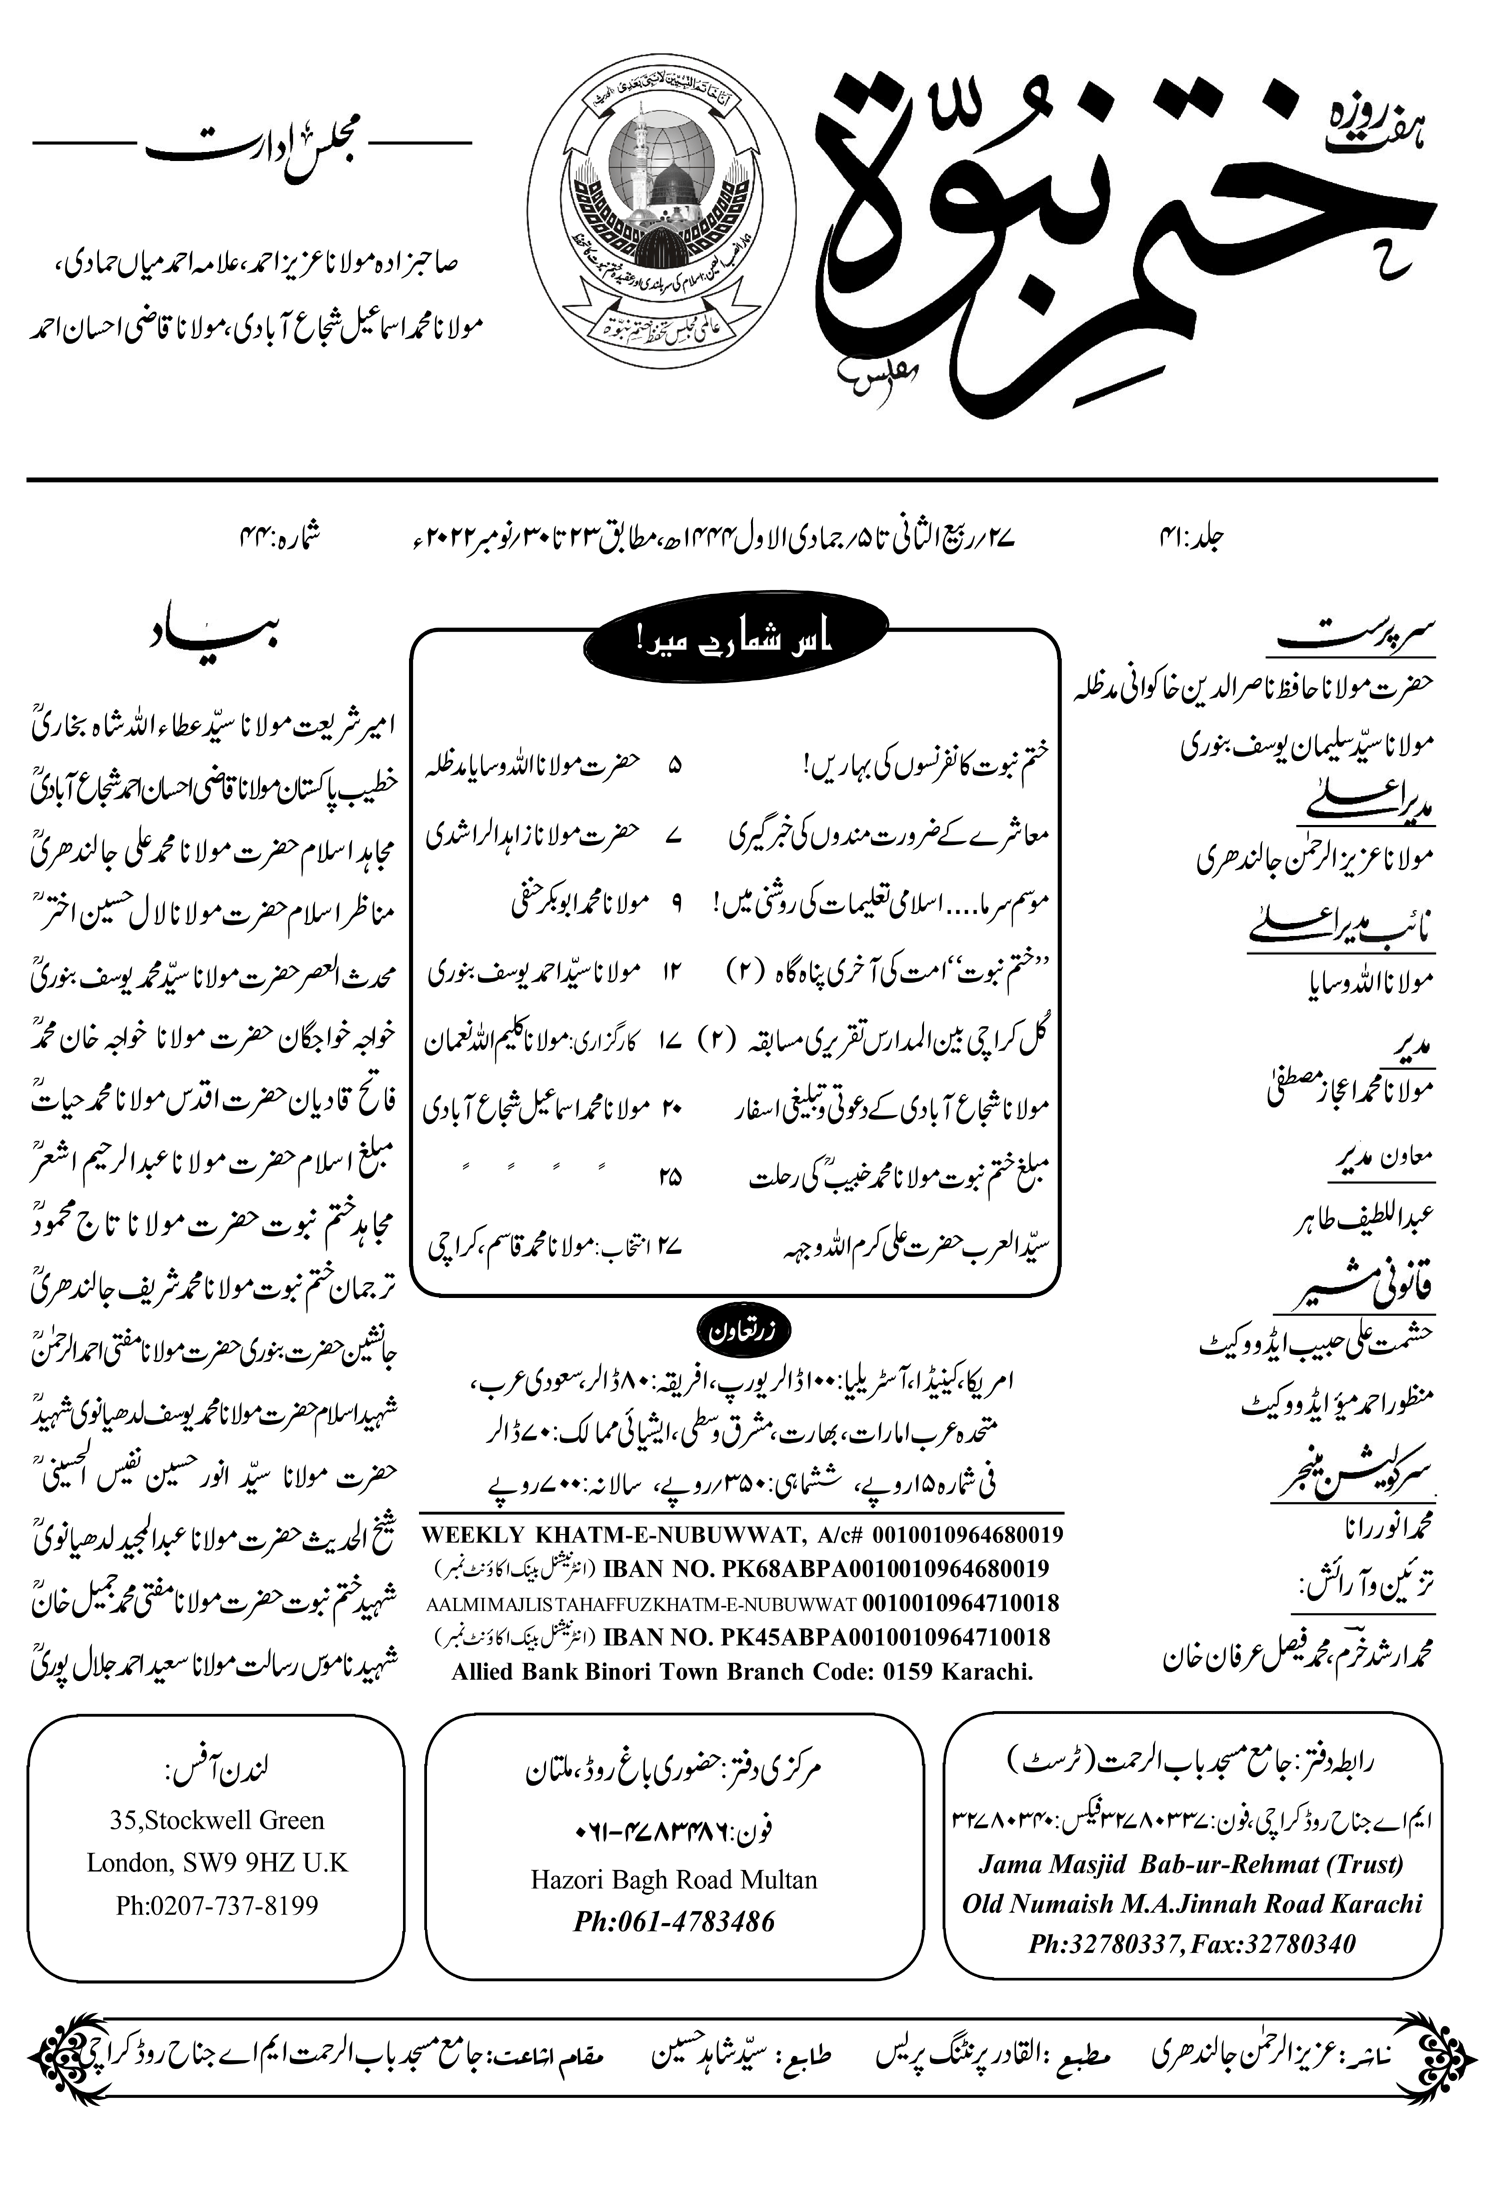 ہفت روزہ
ختمِ نبوّۃ
مجلس ادارت
صاحبزادہ مولانا عزیز احمد، علامہ احمد میاں حمادی،
مولانا محمد اسماعیل شجاع آبادی، مولانا قاضی احسان احمد
عالمی مجلس تحفظ ختم نبوّۃ
جلد: ۴۱
۲۷/ربیع الثانی تا ۵/جمادی الاول ۱۴۴۴ھ، مطابق ۲۳ تا ۳۰/نومبر ۲۰۲۲ء
شمارہ: ۴۴
سرپرست
حضرت مولانا حافظ ناصر الدین خاکوانی مدظلہ
مولانا سیّد سلیمان یوسف بنوری
مدیر اعلیٰ
مولانا عزیز الرحمٰن جالندھری
نائب مدیر اعلیٰ
مولانا اللہ وسایا
مدیر
مولانا محمد اعجاز مصطفیٰ
معاون مدیر
عبداللطیف طاہر
قانونی مشیر
حشمت علی حبیب ایڈووکیٹ
منظور احمد میؤ ایڈووکیٹ
سرکولیشن مینجر
محمد انور رانا
تزئین و آرائش:
محمد ارشد خرم، محمد فیصل عرفان خان
اس شمارے میں!
ختم نبوت کانفرنسوں کی بہاریں! ۵ حضرت مولانا اللہ وسایا مدظلہ
معاشرے کے ضرورت مندوں کی خبر گیری ۷ حضرت مولانا زاہد الراشدی
موسم سرما.... اسلامی تعلیمات کی روشنی میں! ۹ مولانا محمد ابوبکر حنفی
”ختم نبوت“ امت کی آخری پناہ گاہ (۲) ۱۲ مولانا سیّد احمد یوسف بنوری
کُل کراچی بین المدارس تقریری مسابقہ (۲) ۱۷ کارگزاری: مولانا کلیم اللہ نعمان
مولانا شجاع آبادی کے دعوتی و تبلیغی اسفار ۲۰ مولانا محمد اسماعیل شجاع آبادی
مبلغ ختم نبوت مولانا محمد خبیبؒ کی رحلت ۲۵ ״ ״ ״ ״
سیّد العرب حضرت علی کرم اللہ وجہہ ۲۷ انتخاب: مولانا محمد قاسم، کراچی
زرتعاون
امریکا، کینیڈا، آسٹریلیا: ۱۰۰ ڈالر یورپ، افریقہ: ۸۰ ڈالر، سعودی عرب،
متحدہ عرب امارات، بھارت، مشرق وسطی، ایشیائی ممالک: ۷۰ ڈالر
فی شمارہ ۱۵ روپے، ششماہی: ۳۵۰/روپے، سالانہ: ۷۰۰ روپے
WEEKLY KHATM-E-NUBUWWAT, A/c# 0010010964680019
IBAN NO. PK68ABPA0010010964680019 (انٹرنیشنل بینک اکاؤنٹ نمبر)
AALMI MAJLIS TAHAFFUZ KHATM-E-NUBUWWAT 0010010964710018
IBAN NO. PK45ABPA0010010964710018 (انٹرنیشنل بینک اکاؤنٹ نمبر)
Allied Bank Binori Town Branch Code: 0159 Karachi.
بیاد
امیر شریعت مولانا سیّد عطاء اللہ شاہ بخاریؒ
خطیب پاکستان مولانا قاضی احسان احمد شجاع آبادیؒ
مجاہد اسلام حضرت مولانا محمد علی جالندھریؒ
مناظر اسلام حضرت مولانا لال حسین اخترؒ
محدث العصر حضرت مولانا سیّد محمد یوسف بنوریؒ
خواجہ خواجگان حضرت مولانا خواجہ خان محمدؒ
فاتح قادیان حضرت اقدس مولانا محمد حیاتؒ
مبلغ اسلام حضرت مولانا عبدالرحیم اشعرؒ
مجاہد ختم نبوت حضرت مولانا تاج محمودؒ
ترجمان ختم نبوت مولانا محمد شریف جالندھریؒ
جانشین حضرت بنوری حضرت مولانا مفتی احمد الرحمٰنؒ
شہید اسلام حضرت مولانا محمد یوسف لدھیانوی شہیدؒ
حضرت مولانا سیّد انور حسین نفیس الحسینیؒ
شیخ الحدیث حضرت مولانا عبدالمجید لدھیانویؒ
شہید ختم نبوت حضرت مولانا مفتی محمد جمیل خانؒ
شہید ناموس رسالت مولانا سعید احمد جلال پوریؒ
رابطہ دفتر: جامع مسجد باب الرحمت (ٹرسٹ)
ایم اے جناح روڈ کراچی، فون: ۳۲۷۸۰۳۳۷ فیکس: ۳۲۷۸۰۳۴۰
Jama Masjid Bab-ur-Rehmat (Trust)
Old Numaish M.A.Jinnah Road Karachi
Ph:32780337, Fax:32780340
مرکزی دفتر: حضوری باغ روڈ، ملتان
فون: ۰۶۱-۴۷۸۳۴۸۶
Hazori Bagh Road Multan
Ph:061-4783486
لندن آفس:
35,Stockwell Green
London, SW9 9HZ U.K
Ph:0207-737-8199
ناشر: عزیز الرحمٰن جالندھری مطبع: القادر پرنٹنگ پریس طابع: سیّد شاہد حسین مقام اشاعت: جامع مسجد باب الرحمت ایم اے جناح روڈ کراچی